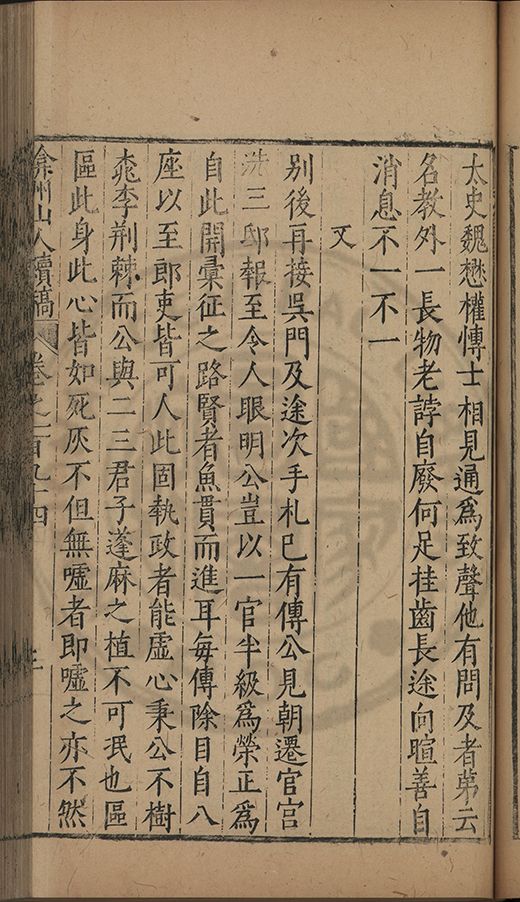 太史魏懋權愽士相見通為致聲他有問及者苐云
名教外一長物老誖自廢何足挂齒長途向暄善自
消息不一不一
又
别後再接吳門及途次手札巳有傳公見朝遷官宮
洗三邸報至令人眼明公豈以一官半級為榮正為
自此開彙征之路賢者魚貫而進耳每傳除目自八
座以至郎吏皆可人此固執政者能虚心秉公不樹
桃李荆棘而公與二三君子蓬麻之植不可泯也區
區此身此心皆如死灰不但無嘘者即嘘之亦不然
弇州山人續稿 卷之一百九十四